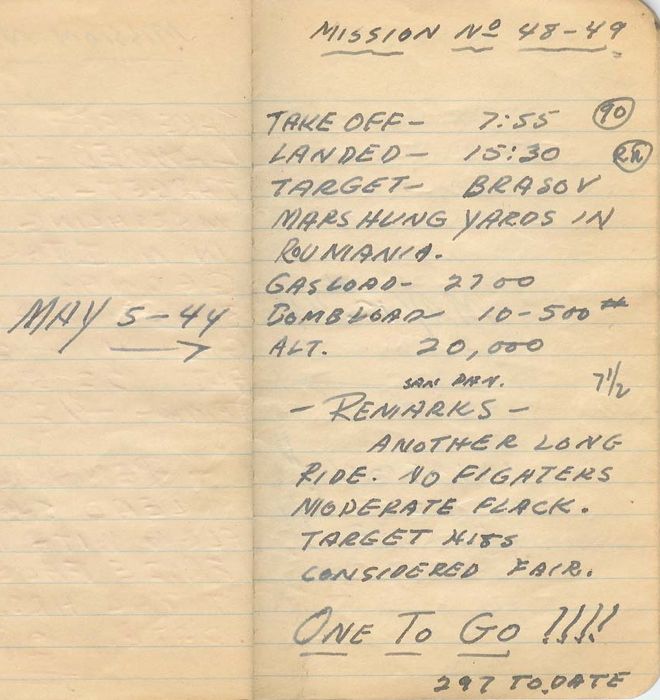 MISSION Nº 48-49
TAKE OFF- 7:55 90
LANDED- 15:30
TARGET- BRASOV
MARSHLING YARDS IN
ROUMANIA.
GASLOAD- 2700
MAY 5-44 BOMBLOAD- 10-500#
ALT. 20,000
SAN PAN. 7 1/2
- REMARKS -
ANOTHER LONG
RIDE. NO FIGHTERS
MODERATE FLACK.
TARGET HITS
CONSIDERED FAIR.
ONE TO GO !!!!
297 TO DATE